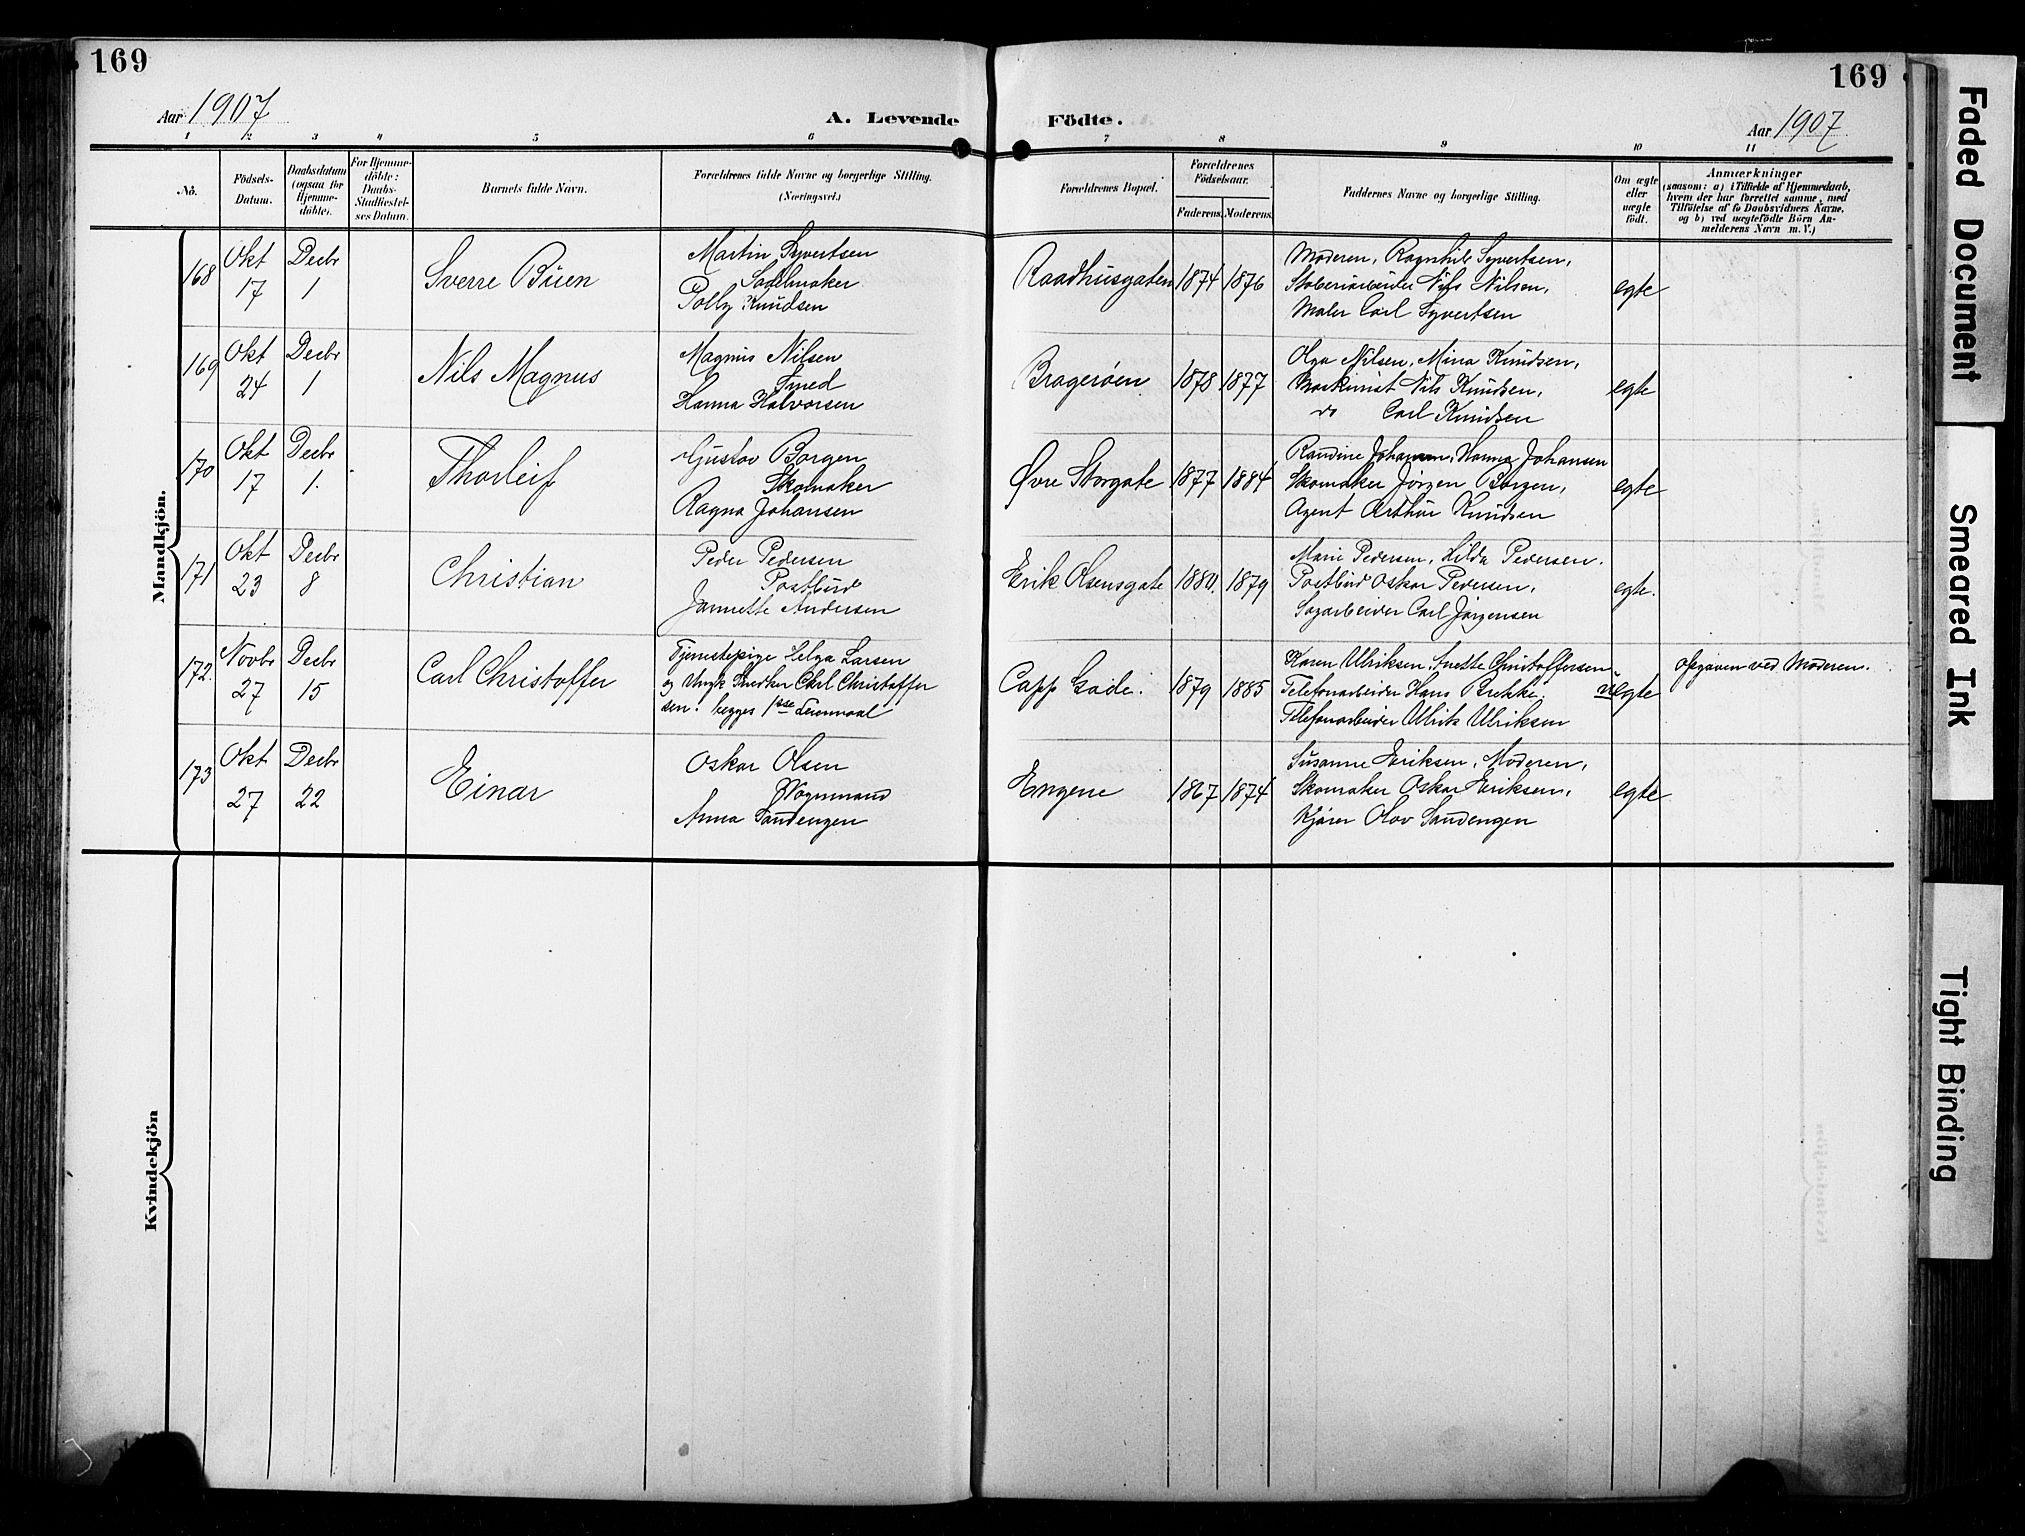 169
169
Aar 1907
A. Levende Födte.
Aar 1907
1 2 3 4 5 6 7 8 9 10 11
No.
Födsels-Datum.
Daabsdatum (ogsaa for Hjemme-döbte).
For Hjemme-döbte: Daabs-Stadfæstel-ses Datum.
Barnets fulde Navn.
Forældrenes fulde Navne og borgerlige Stilling. (Næringsvei.)
Forældrenes Bopæl.
Forældrenes Födselsaar.
Faderens. Moderens.
Faddernes Navne og borgerlige Stilling.
Om ægte eller uægte födt.
Anmærkninger
(saasom: a) i Tilfælde af Hjemmedaab,
hvem der har forrettet samme, med
Tilföielse af to Daabsvidners Navne,
og b) ved uægtefödte Börn An-
melderens Navn m. V.)
Mandkjön.
168 Okt 17 Decbr 1 Sverre Büen
Martin Syvertsen
Sadelmaker
Polly Knudsen
Raadhusgaten 1874 1876
Moderen, Ragnhild Syvertsen,
Nils Nilsen,
Maler Carl Syvertsen
egte
169 Okt 24 Decbr 1 Nils Magnus
Magnus Nilsen
Smed
Hanna Halvorsen
Bragerøen 1878 1877
Olga Nilsen, Mina Knudsen,
Maskinist Nils Knudsen,
do Carl Knudsen
egte
170 Okt 17 Decbr 1. Thorleif
Gustav Borgen
Skomaker
Ragna Johansen
Øvre Storgate 1877 1884
Randine Johansen, Hanna Johansen
Skomaker Jørgen Borgen,
Agent Arthur Knudsen
egte
171 Okt 23 Decbr 8 Christian
Peder Pedersen
Postbud
Jannette Andersen
Erik Olsensgate 1880. 1879
Marie Pedersen, Hilda Pedersen.
Postbud Oskar Pedersen,
Sagarbeider Carl Jørgensen
egte.
172. Novbr 27 Decbr 15 Carl Christoffer
Tjenestepige Helga Larsen
og Ungk Snedker Carl Christoffer
sen. begges 1sse Leiermaal
Capp Gade. 1879 1885
Karen Ulriksen, Anette Christoffersen
Telefonarbeider Hans Brekke.
Telefonarbeider Ulrik Ulriksen
uegte
Opgiven ved Moderen.
173 Okt 27 Decbr 22 Einar
Oskar Olsen
Vognmand
Anna Sandengen
Engene 1867 1874
Susanne Eriksen, Moderen,
Skomaker Oskar Eriksen,
Kjører Olav Sandengen
egte
Kvindekjön
Faded Document
Smeared Ink
Tight Binding